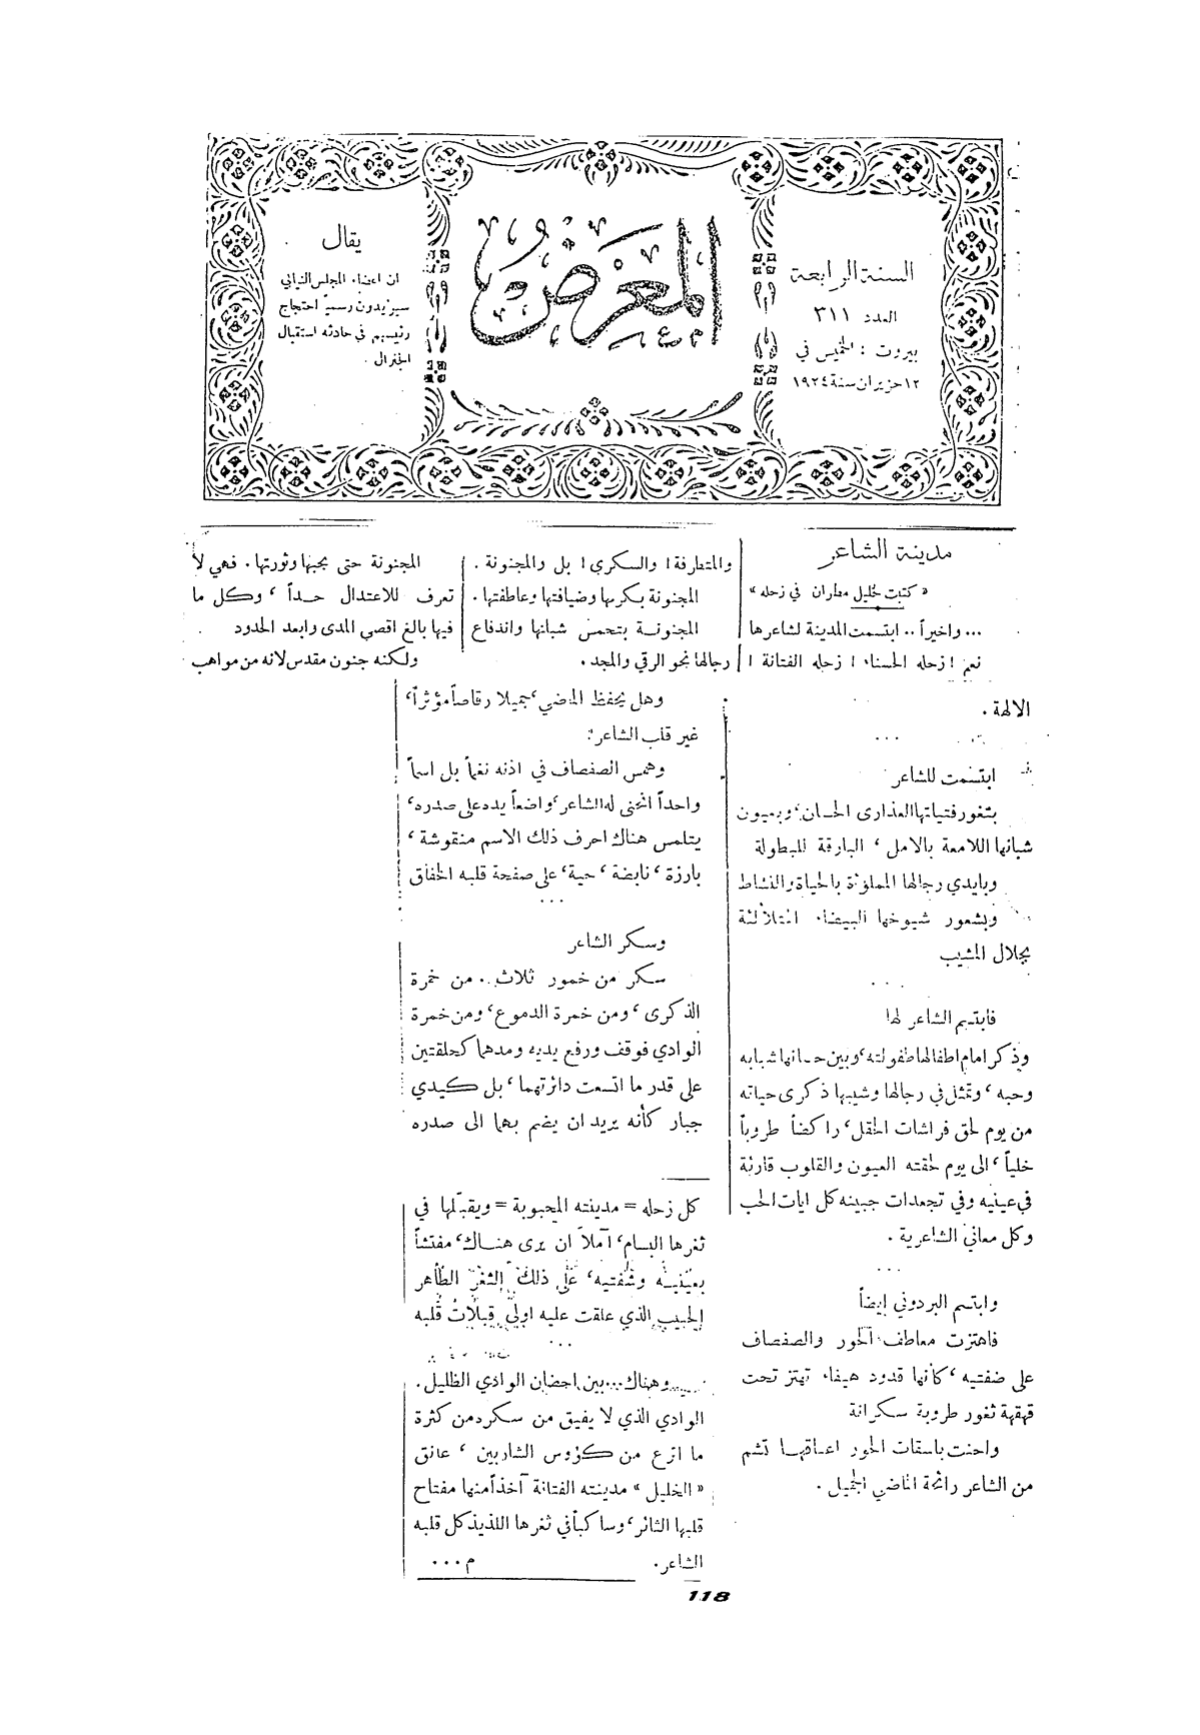 السنة الرابعة
العدد ٣١١
بيروت : الخميس في
١٢ حزيران سنة ١٩٢٤
المعرض
يقال
ان اعضاء المجلس النيابي
سيزيدون رسمياً احتجاج
رئيسهم في حادثه استقبال
الجنرال .
مدينة الشاعر
« كتبت لخليل مطران في زحله »
... واخيراً .. ابتسمت المدينة لشاعرها
نعم ! زحله الحسناء ! زحله الفتانة !
والمتطرفة ! والسكرى ! بل والمجنونة .
المجنونة بكرمها وضيافتها وعاطفتها .
المجنونة بتحمس شبانها واندفاع
رجالها نحو الرقي والمجد .
المجنونة حتى بحبها وثورتها . فهي لا
تعرف للاعتدال حداً ، وكل ما
فيها بالغ اقصى المدى وابعد الحدود
ولكنه جنون مقدس لانه من مواهب
الالهة .
...
ابتسمت للشاعر
بثغور فتياتها العذارى الحسان ، وبعيون
شبانها اللامعة بالامل ، البارقة للبطولة
وبايدي رجالها المملوءة بالحياة والنشاط
وبشعور شيوخها البيضاء المتلألئة
بجلال المشيب
...
فابتسم الشاعر لها
وذكر امام اطفالها طفولته ، وبين حسانها شبابه
وحبه ، وتمثل في رجالها وشيبها ذكرى حياته
من يوم لحق فراشات الحقل ، راكضاً طروباً
خلياً ، الى يوم لحقته العيون والقلوب قارئة
في عينيه وفي تجعدات جبينه كل ايات الحب
وكل معاني الشاعرية .
...
وابتسم البردوني ايضاً
فاهتزت معاطف الحور والصفصاف
على ضفتيه ، كأنها قدود هيفاء تهتز تحت
قهقهة ثغور طروبة سكرانة
واحنت باسقات الحور اعناقها تشم
من الشاعر رائحة الماضي الجميل .
وهل يحفظ الماضي ، جميلا رقاصاً مؤثراً ،
غير قلب الشاعر ؟
وهمس الصفصاف في اذنه نغماً بل اسماً
واحداً انحنى له الشاعر ، واضعاً يده على صدره ،
يتلمس هناك احرف ذلك الاسم منقوشة ،
بارزة ، نابضة ، حية ، على صفحة قلبه الخفاق
...
وسكر الشاعر
سكر من خمور ثلاث .. من خمرة
الذكرى ، ومن خمرة الدموع ، ومن خمرة
الوادي فوقف ورفع يديه ومدهما كحلقتين
على قدر ما اتسعت دائرتهما ، بل كيدي
جبار كأنه يريد ان يضم بهما الى صدره
كل زحله = مدينته المحبوبة = ويقبّلها في
ثغرها البسام ، آملاً ان يرى هناك ، مفتشاً
بعينيه وشفتيه ، على ذلك الثغر الطاهر
الحبيب الذي علقت عليه اولى قبلات قلبه
...
وهناك ... بين احضان الوادي الظليل .
الوادي الذي لا يفيق من سكره من كثرة
ما اترع من كؤوس الشاربين ، عانق
« الخليل » مدينته الفتانة آخذاً منها مفتاح
قلبها الثائر ، وساكباً في ثغرها اللذيذ كل قلبه
الشاعر . م ...
118